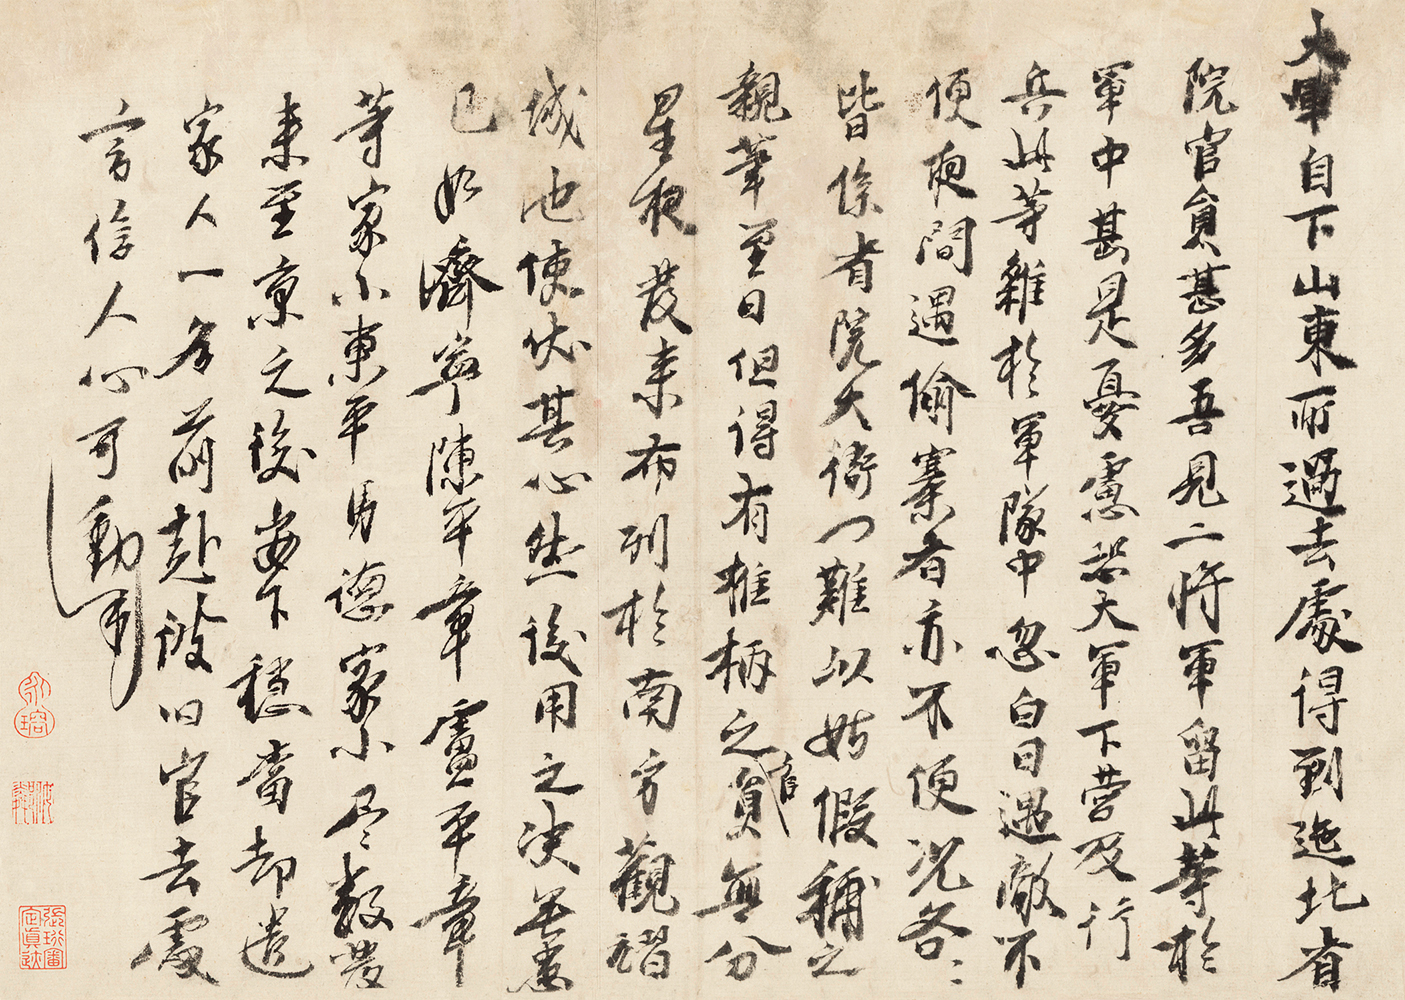 大軍自下山東所過去處得到迤北省
院官員甚多吾見二將軍留此等於
軍中甚是憂慮恐大軍下營及行
兵此等雜於軍隊中忽白日遇敵不
便夜間遇偷寨者亦不便況各各
皆係省院大衙門難以姑假補之
親筆至日但得有椎柄之員官無分
星夜發來布列於南方觀玩
城池使伏其心然後用之決無患
已如濟寧陳平章盧平章
等家小東平馬德家小盡數發
來至京之後安下穩當卻遣
家人一名前赴彼舊官去處
言信人心可動